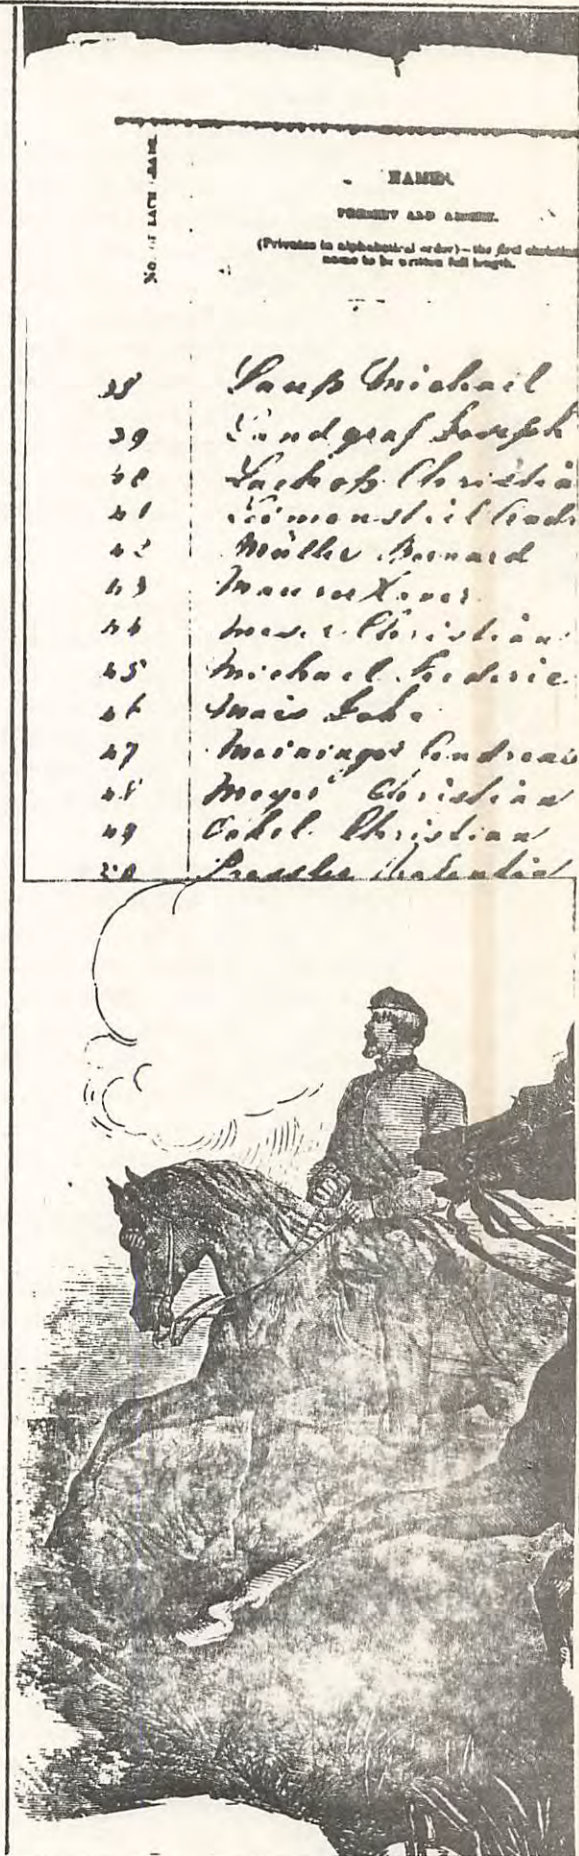 No. OF EACH GRADE.
NAMES,
PRESENT AND ABSENT.
(Privates in alphabetical order)—the first christian
name to be written full length.
38 Laup Michael
39 Landgraf Joseph
40 Christia
41 Andr
42 Müller Bernard
43 Xaver
44 Christian
45 Michael Frederic
46 Mais
47 Meininger Andreas
48 Meyer Christian
49 Oekel Christian
50 Pressler Valentin